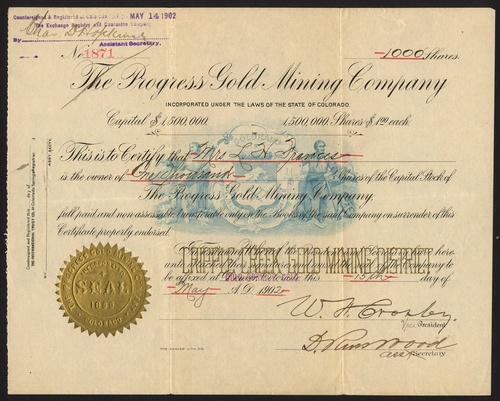 Countersigned & Registered at MAY 14 1902
The Exchange Registry and Guarantee Company
By Chas. D. Hopkins
Assistant Secretary.
No. 1871
1000 Shares.
The Progress Gold Mining Company
INCORPORATED UNDER THE LAWS OF THE STATE OF COLORADO.
Capital $1,500,000. 1,500,000 Shares $1.00 each
COLORADO
This is to Certify that Mrs L. F. Francis
is the owner of One thousand Shares of the Capital Stock of
The Progress Gold Mining Company,
full paid and non-assessable transferable only on the Books of the said Company on surrender of this
Certificate properly endorsed.
In testimony Whereof the President and Secretary have here
CRIPPLE CREEK GOLD MINING DISTRICT
to be affixed at this 15th day of
May A.D. 1902
W. H. Crosby
Vice President
Wood
Asst Secretary
SEAL
Countersigned and Registered this day of
THE INTERNATIONAL TRUST CO. of Colorado Springs Registrar